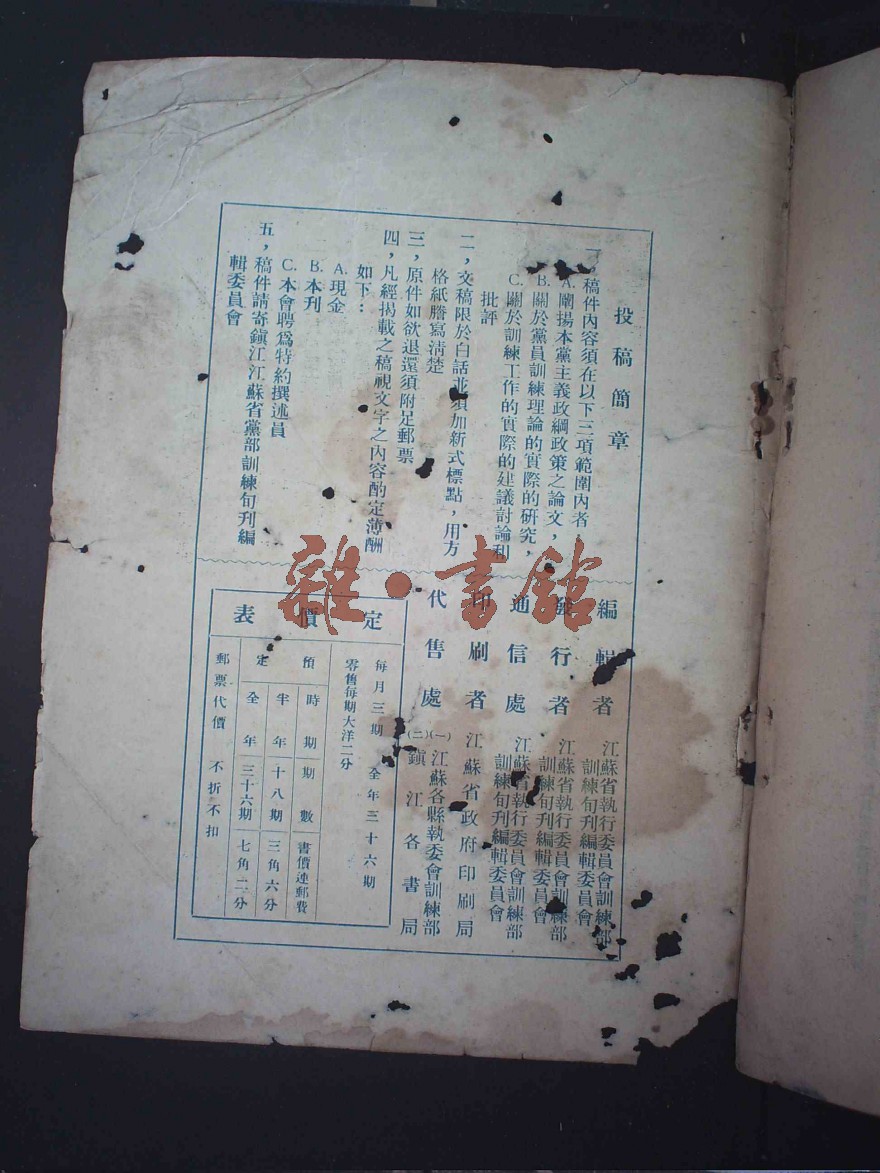 投稿簡章
一，稿件內容須在以下三項範圍內者
A. 闡揚本黨主義政綱政策之論文，
B. 關於黨員訓練理論的實際的研究，
C. 關於訓練工作的實際的建議討論和
批評
二，文稿限於白話並須加新式標點，用方
格紙謄寫清楚
三，原件如欲退還須附足郵票
四，凡經揭載之稿視文字之內容酌定薄酬
如下：
A. 現金
B. 本刊
C. 本會聘爲特約撰述員
五，稿件請寄鎭江江蘇省黨部訓練旬刊編
輯委員會
編輯者 江蘇省執行委員會訓練部
訓練旬刊編輯委員會
發行者 江蘇省執行委員會訓練部
訓練旬刊編輯委員會
通信處 江蘇省執行委員會訓練部
訓練旬刊編輯委員會
印刷者 江蘇省政府印刷局
代售處 (一)江蘇各縣執委會訓練部
(二)鎭江各書局
定價表
每月三期 全年三十六期
零售每期大洋二分
預定
時期 期數 書價連郵費
半年 十八期 三角六分
全年 三十六期 七角二分
郵票代價 不折不扣
雜·書館